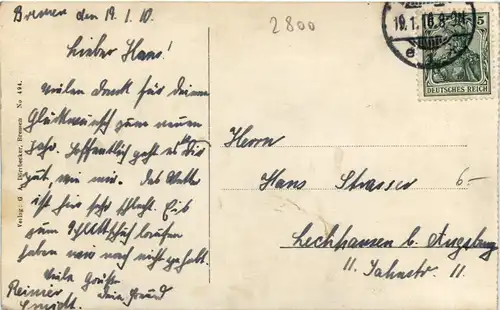 Bremen den 19. 1. 10.
2800
Lieber Hans!
Vielen Dank für deinen
Glückwunsch zum neuen
Jahr. Hoffentlich geht es Dir
gut, wie mir. Das Wetter
ist hier sehr schlecht. Eis
zum Schlittschuhlaufen
haben wir noch nicht gehabt.
Viele Grüße
dein Freund
Reinier
Smidt.
Verlag: G. Dörrbecker, Bremen No 494.
19.1.10.8-9N
e
5
DEUTSCHES REICH
Herrn
Hans Strasser
6-
Lechhausen b. Augsburg
11. Jahnstr. 11